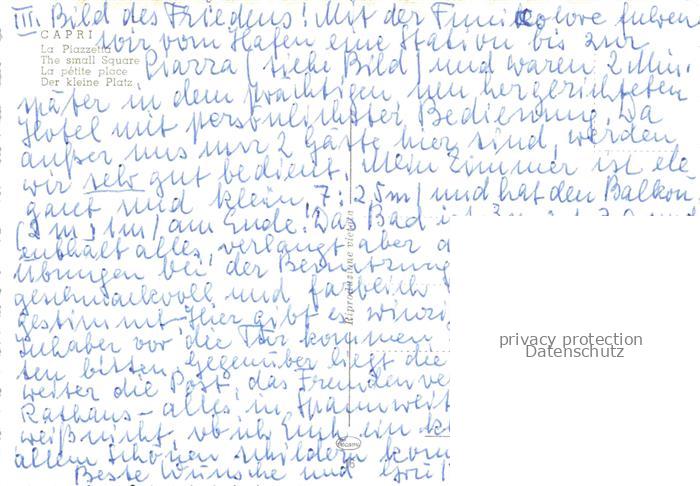 III. Bild des Friedens! Mit der Funikolore fuhren
CAPRI
wir vom Hafen eine Station bis zur
La Piazzetta
The small Square
La pétite place
Der kleine Platz
Piazza (siehe Bild) und waren 2 Min.
später in dem prächtigen neu hergerichteten
Hotel mit persönlichster Bedienung. Da
außer uns nur 2 Gäste hier sind, werden
wir sehr gut bedient. Mein Zimmer ist ele
gant und klein, 7:2,5m, und hat den Balkon
(2m, 1m) am Ende! Das Bad ist
enthält alles, verlangt aber
Übungen bei der Benutzung
geschmackvoll und farblich
gestimmt. Hier gibt es winzi
Inhaber vor die Tür kommen
ten bitten, gegenüber liegt die
weiter die Post, das Fremdenve
Rathaus - alles in Spannweit
weiß nicht, ob ich Euch ein
allem Schönen schildern kon
Beste Wünsche und Grüß
Riproduzione vietata
privacy protection
Datenschutz